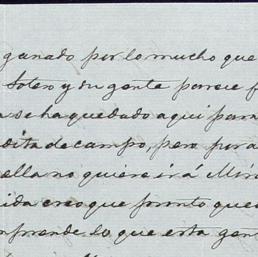 ganado por lo mucho que
Sotero y su gente parece
se ha quedado aquí para
dita de campo, pero para
ella no quiere ir á
ida creo que pronto que
mprende lo que esta gen